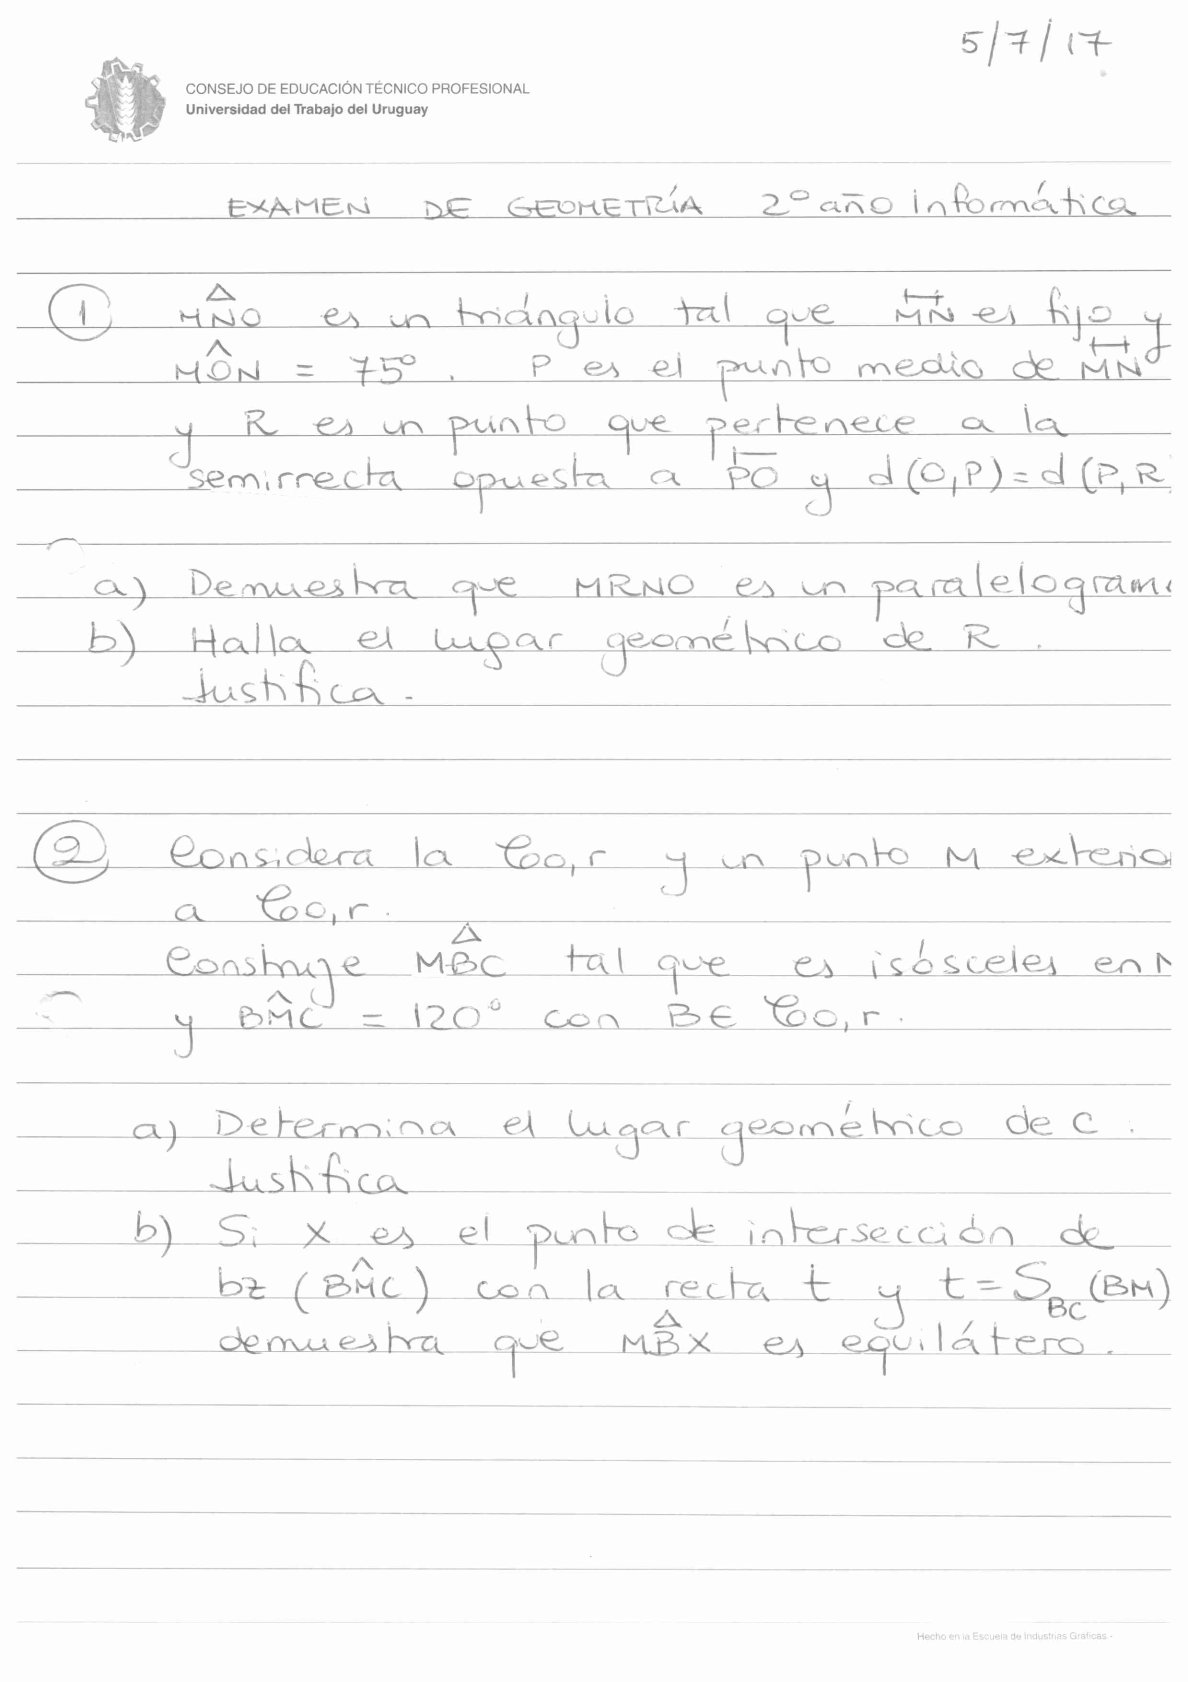 5/7/17
CONSEJO DE EDUCACIÓN TÉCNICO PROFESIONAL
Universidad del Trabajo del Uruguay
EXAMEN DE GEOMETRÍA 2º año informática
1 MNO es un triángulo tal que MN es fijo y
MÔN = 75º. P es el punto medio de MN
y R es un punto que pertenece a la
semirrecta opuesta a PO y d(O,P)=d(P,R
a) Demuestra que MRNO es un paralelogram
b) Halla el lugar geométrico de R.
Justifica.
2 Considera la Co,r y un punto M exterio
a Co,r.
Construye MBC tal que es isósceles en
y BM̂C = 120º con B∈ Co,r.
a) Determina el lugar geométrico de C.
Justifica
b) Si X es el punto de intersección de
bz (BM̂C) con la recta t y t = S_BC (BM)
demuestra que MBX es equilátero.
Hecho en la Escuela de Industrias Gráficas.-